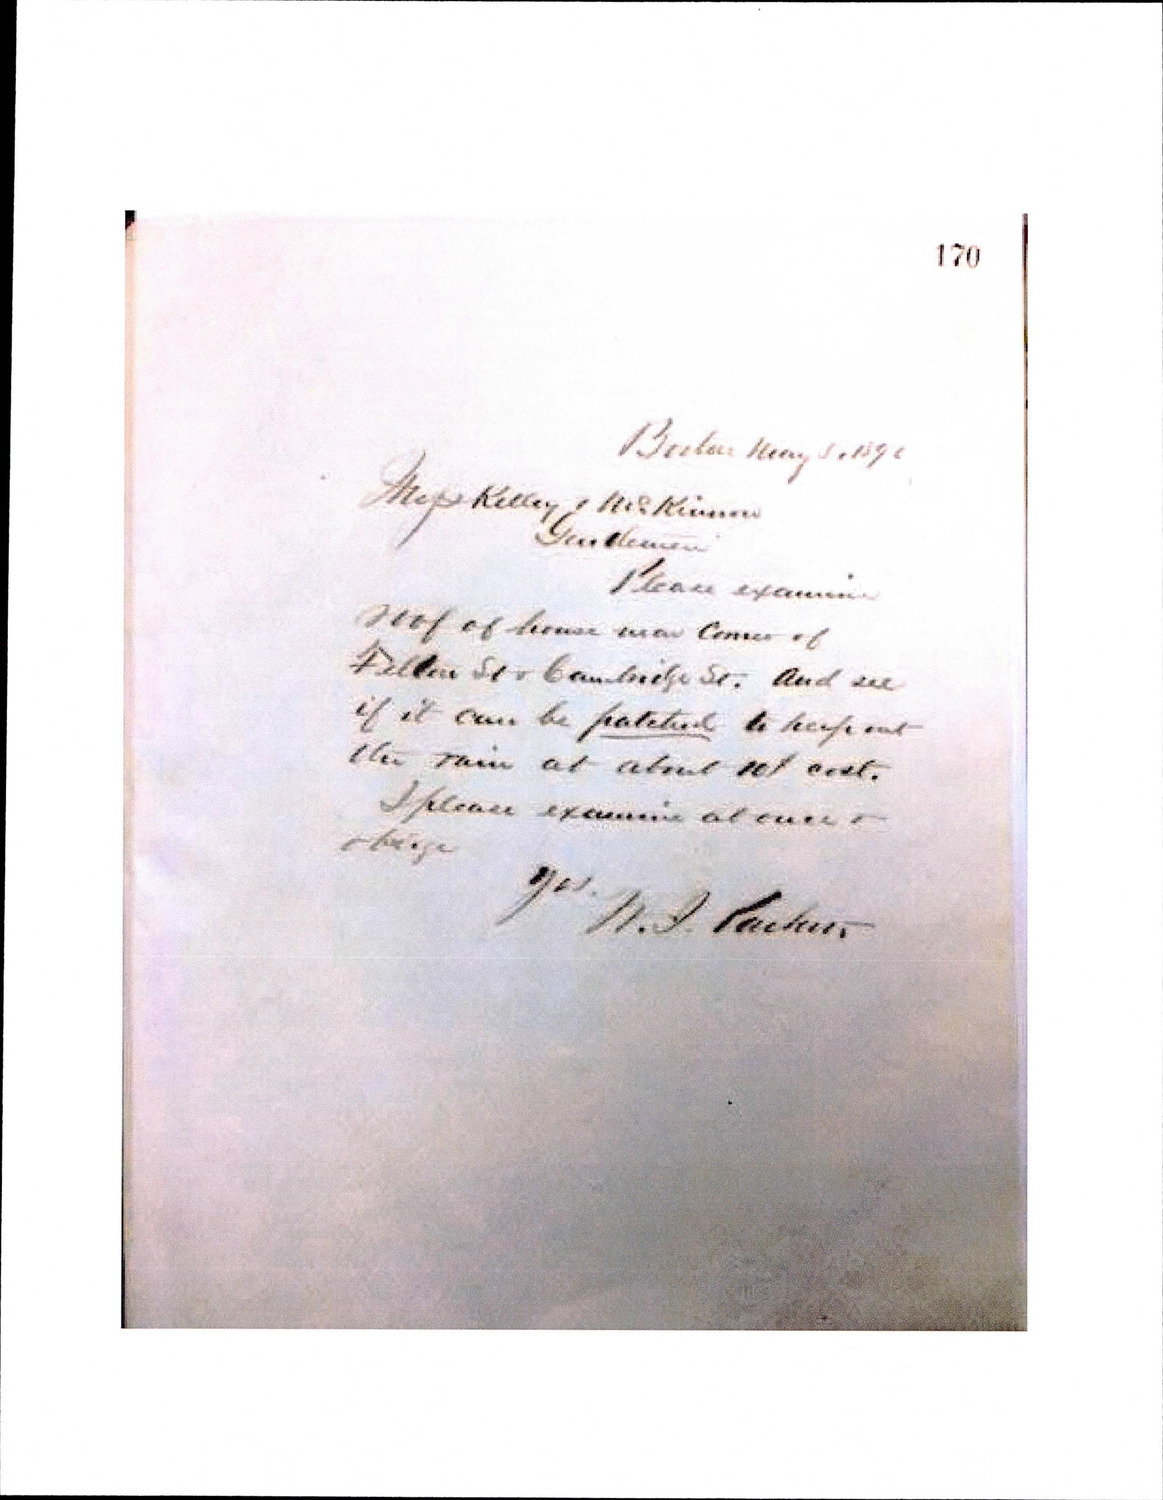 170
Boston May 5. 189
Mess Kelley & McKinnon
Gentlemen
Please examine
roof of house near Corner of
Felton St & Cambridge St. And see
if it can be patched to keep out
the rain at about cost.
please examine at once &
oblige
Yrs.
W. I. Parker.